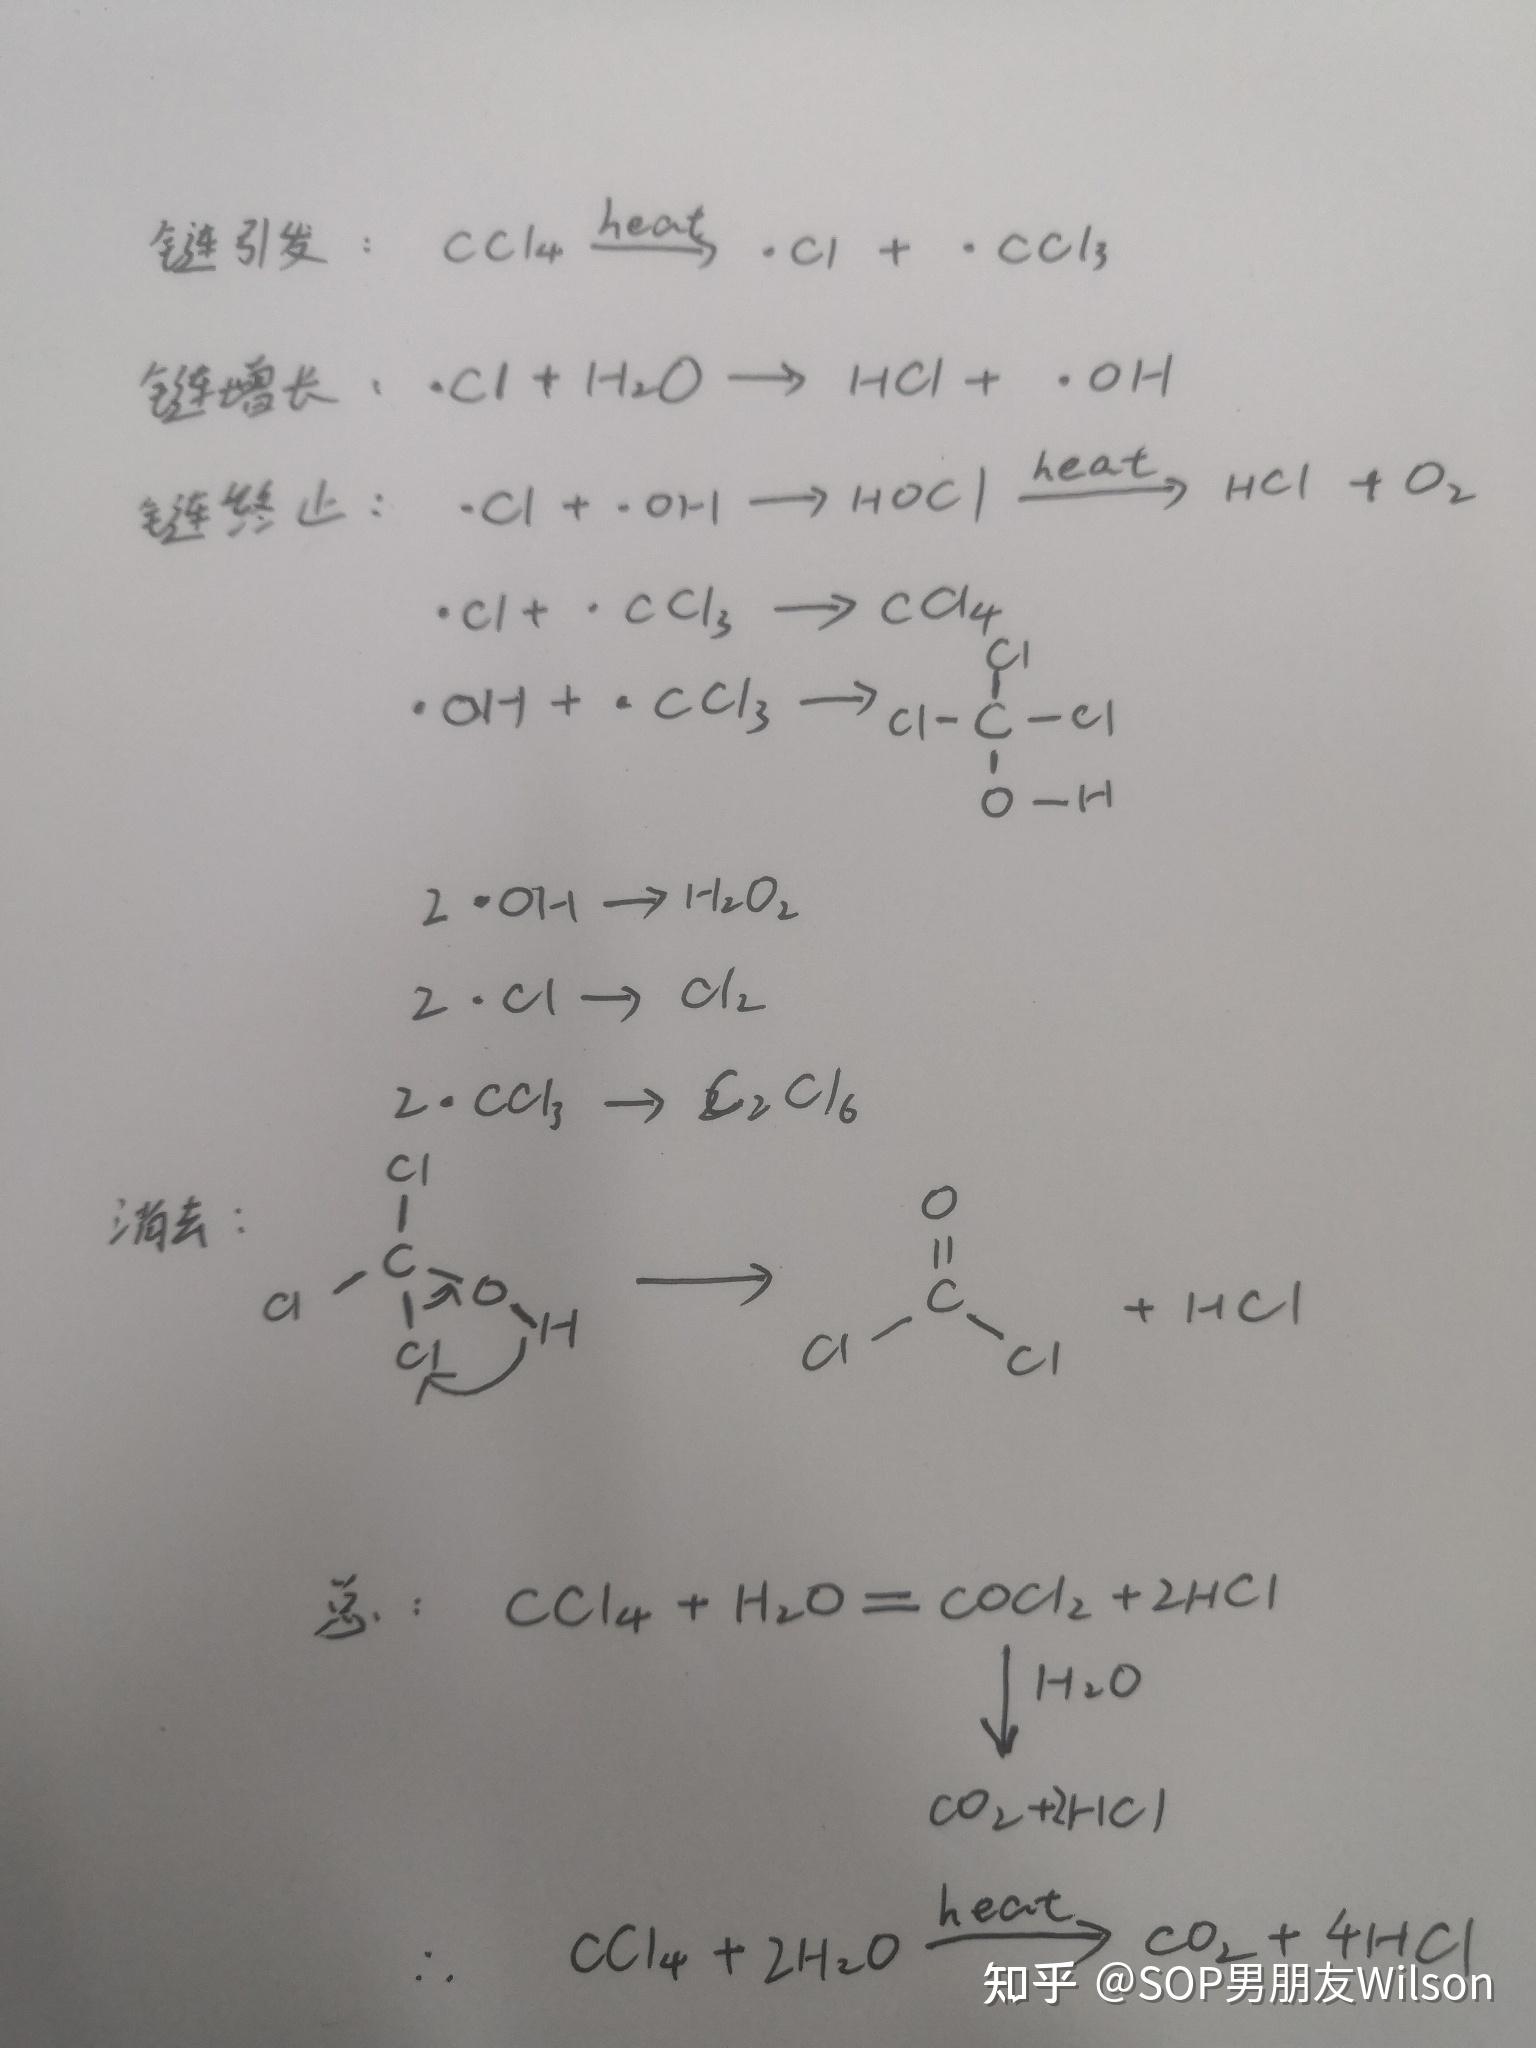 链引发： CCl4 heat→ ·Cl + ·CCl3
链增长： ·Cl + H2O → HCl + ·OH
链终止： ·Cl + ·OH → HOCl heat→ HCl + O2
·Cl + ·CCl3 → CCl4
·OH + ·CCl3 →
Cl
Cl-C-Cl
O-H
2·OH → H2O2
2·Cl → Cl2
2·CCl3 → C2Cl6
消去：
Cl
C
Cl O
H
Cl
→
O
C
Cl Cl
+ HCl
总： CCl4 + H2O = COCl2 + 2HCl
↓ H2O
CO2+2HCl
∴ CCl4 + 2H2O heat→ CO2 + 4HCl
知乎 @SOP男朋友Wilson